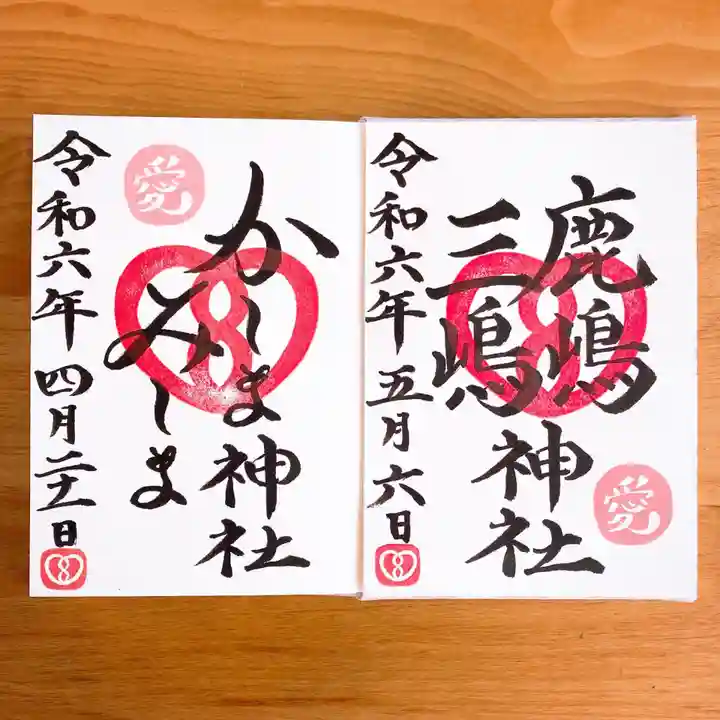 愛
かしま
みしま
神社
令和六年四月二十一日
鹿嶋
三嶋
神社
愛
令和六年五月六日